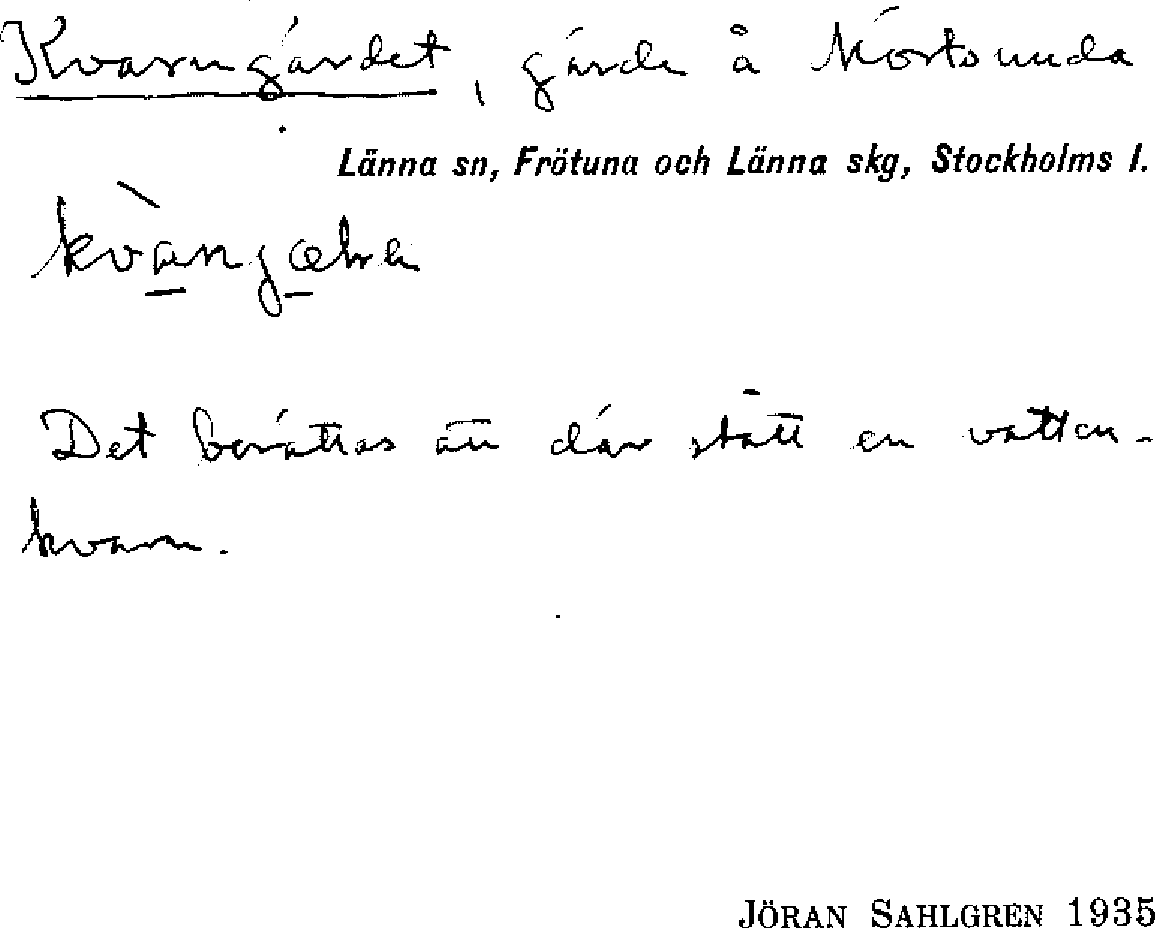 Kvarngärdet, gärde å Mörtsunda
Länna sn, Frötuna och Länna skg, Stockholms l.
Det berättas att där stått en vatten-
kvarn.
JÖRAN SAHLGREN 1935